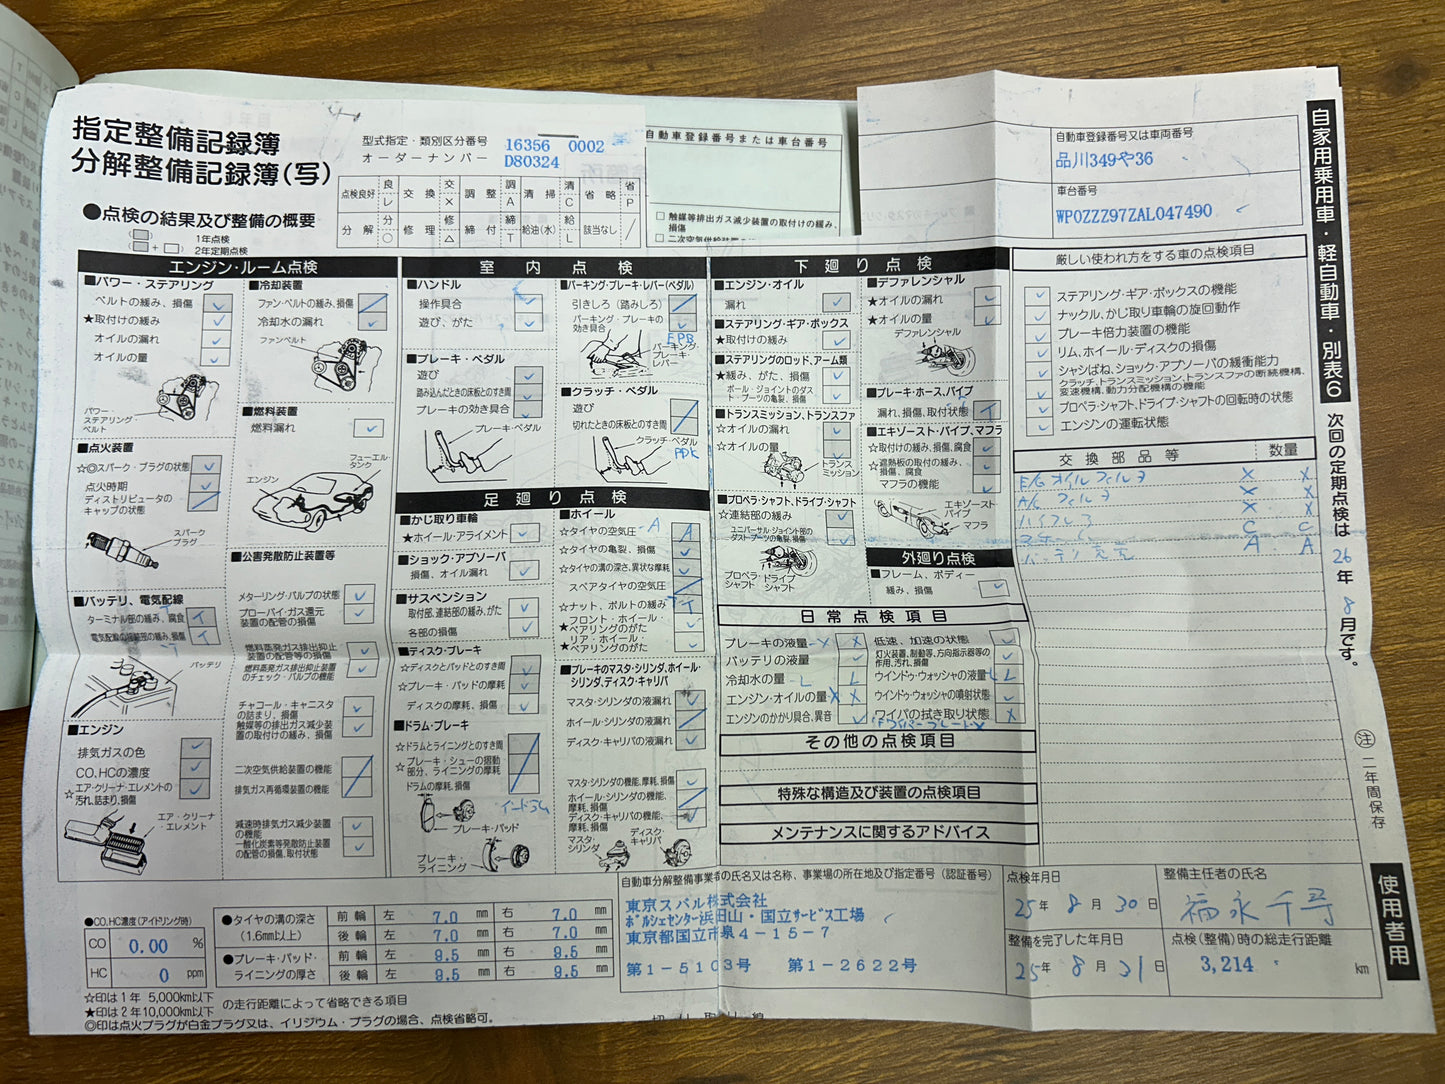 指定整備記録簿
分解整備記録簿(写)
型式指定・類別区分番号 16356 0002
オーダーナンバー D80324
点検良好 レ 交換 × 調整 A 清掃 C 省略 P
分解 ○ 修理 △ 締付 T 給油(水) L 該当なし /
●点検の結果及び整備の概要
1年点検
2年定期点検
自動車登録番号または車台番号
□ 触媒等排出ガス減少装置の取付けの緩み、
損傷
自動車登録番号又は車両番号
品川349や36
車台番号
WP0ZZZ97ZAL047490
自家用乗用車・軽自動車・別表6
次回の定期点検は 26年 8月です。
注 二年間保存
使用者用
エンジン・ルーム点検
■パワー・ステアリング
ベルトの緩み、損傷
★取付けの緩み
オイルの漏れ
オイルの量
パワー・
ステアリング・
ベルト
■点火装置
☆◎スパーク・プラグの状態
点火時期
ディストリビュータの
キャップの状態
スパーク
プラグ
■バッテリ、電気配線
ターミナル部の緩み、腐食 T
電気配線の接続部の緩み、損傷 T
バッテリ
■エンジン
排気ガスの色
CO、HCの濃度
☆エア・クリーナ・エレメントの
汚れ、詰まり、損傷
エア・クリーナ・
エレメント
■冷却装置
ファン・ベルトの緩み、損傷
冷却水の漏れ
ファンベルト
■燃料装置
燃料漏れ
フューエル・
タンク
エンジン
■公害発散防止装置等
メターリング・バルブの状態
ブローバイ・ガス還元
装置の配管の損傷
燃料蒸発ガス排出抑止
装置の配管等の損傷
燃料蒸発ガス排出抑止装置
のチェック・バルブの機能
チャコール・キャニスタ
の詰まり、損傷
触媒等の排出ガス減少装
置の取付けの緩み、損傷
二次空気供給装置の機能
排気ガス再循環装置の機能
減速時排気ガス減少装置
の機能
一酸化炭素等発散防止装置
の配管の損傷、取付状態
室内点検
■ハンドル
操作具合
遊び、がた
■ブレーキ・ペダル
遊び
踏み込んだときの床板とのすき間
ブレーキの効き具合
ブレーキ・ペダル
■パーキング・ブレーキ・レバー(ペダル)
引きしろ(踏みしろ)
パーキング・ブレーキの
効き具合
EPB
パーキング・
ブレーキ・
レバー
■クラッチ・ペダル
遊び
切れたときの床板とのすき間
クラッチ・ペダル
PDK
足廻り点検
■かじ取り車輪
★ホイール・アライメント
■ショック・アブソーバ
損傷、オイル漏れ
■サスペンション
取付部、連結部の緩み、がた
各部の損傷
■ディスク・ブレーキ
☆ディスクとパッドとのすき間
☆ブレーキ・パッドの摩耗
ディスクの摩耗、損傷
■ドラム・ブレーキ
☆ドラムとライニングとのすき間
☆ブレーキ・シューの摺動
部分、ライニングの摩耗
ドラムの摩耗、損傷
インドラム
ブレーキ・パッド
ブレーキ・
ライニング
■ホイール
☆タイヤの空気圧 A A
☆タイヤの亀裂、損傷
☆タイヤの溝の深さ、異状な摩耗
スペアタイヤの空気圧
☆ナット、ボルトの緩み T T
★フロント・ホイール・
ベアリングのがた
★リア・ホイール・
ベアリングのがた
■ブレーキのマスタ・シリンダ、ホイール・
シリンダ、ディスク・キャリパ
マスタ・シリンダの液漏れ
ホイール・シリンダの液漏れ
ディスク・キャリパの液漏れ
マスタ・シリンダの機能、摩耗、損傷
ホイール・シリンダの機能、
摩耗、損傷
ディスク・キャリパの機能、
摩耗、損傷
マスタ・
シリンダ
ディスク・
キャリパ
下廻り点検
■エンジン・オイル
漏れ
■ステアリング・ギア・ボックス
★取付けの緩み
■ステアリングのロッド、アーム類
★緩み、がた、損傷
ボール・ジョイントのダス
ト・ブーツの亀裂、損傷
■トランスミッション、トランスファ
☆オイルの漏れ
☆オイルの量
トランス
ミッション
■プロペラ・シャフト、ドライブ・シャフト
☆連結部の緩み
ユニバーサル・ジョイント部の
ダスト・ブーツの亀裂、損傷
プロペラ・
シャフト
ドライブ・
シャフト
■デファレンシャル
★オイルの漏れ
★オイルの量
デファレンシャル
■ブレーキ・ホース、パイプ
漏れ、損傷、取付状態 T
■エキゾースト・パイプ、マフラ
☆取付けの緩み、損傷、腐食
☆遮熱板の取付の緩み、
損傷、腐食
マフラの機能
エキゾースト・
パイプ
マフラ
外廻り点検
■フレーム、ボディー
緩み、損傷
日常点検項目
ブレーキの液量 × ×
バッテリの液量
冷却水の量 L L
エンジン・オイルの量 × ×
エンジンのかかり具合、異音
低速、加速の状態
灯火装置、制動等、方向指示器等の
作用、汚れ、損傷
ウインドゥ・ウォッシャの液量 L L
ウインドゥ・ウォッシャの噴射状態
ワイパの拭き取り状態 ×
その他の点検項目
特殊な構造及び装置の点検項目
メンテナンスに関するアドバイス
厳しい使われ方をする車の点検項目
ステアリング・ギア・ボックスの機能
ナックル、かじ取り車輪の旋回動作
ブレーキ倍力装置の機能
リム、ホイール・ディスクの損傷
シャシばね、ショック・アブソーバの緩衝能力
クラッチ、トランスミッション、トランスファの断続機構、
変速機構、動力分配機構の機能
プロペラ・シャフト、ドライブ・シャフトの回転時の状態
エンジンの運転状態
交換部品等 数量
E/G オイル フィルタ × ×
A/C フィルタ × ×
× ×
C C
バッテリ充電 A A
●CO、HC濃度(アイドリング時)
CO 0.00 %
HC 0 ppm
●タイヤの溝の深さ
(1.6mm以上)
前輪 左 7.0 mm 右 7.0 mm
後輪 左 7.0 mm 右 7.0 mm
●ブレーキ・パッド、
ライニングの厚さ
前輪 左 9.5 mm 右 9.5 mm
後輪 左 9.5 mm 右 9.5 mm
☆印は1年 5,000km以下
★印は2年10,000km以下 の走行距離によって省略できる項目
◎印は点火プラグが白金プラグ又は、イリジウム・プラグの場合、点検省略可。
自動車分解整備事業者の氏名又は名称、事業場の所在地及び指定番号(認証番号)
東京スバル株式会社
ポルシェセンター浜田山・国立サービス工場
東京都国立市泉4-15-7
第1-5103号 第1-2622号
点検年月日
25年 8月 30日
整備を完了した年月日
25年 8月 31日
整備主任者の氏名
福永千尋
点検(整備)時の総走行距離
3,214 km
切り取り線